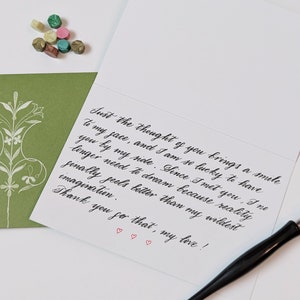 Just the thought of you brings a smile
to my face, and I am so lucky to have
you by my side. Since I met you, I no
longer need to dream because reality
finally feels better than my wildest
imagination.
Thank you for that, my love!